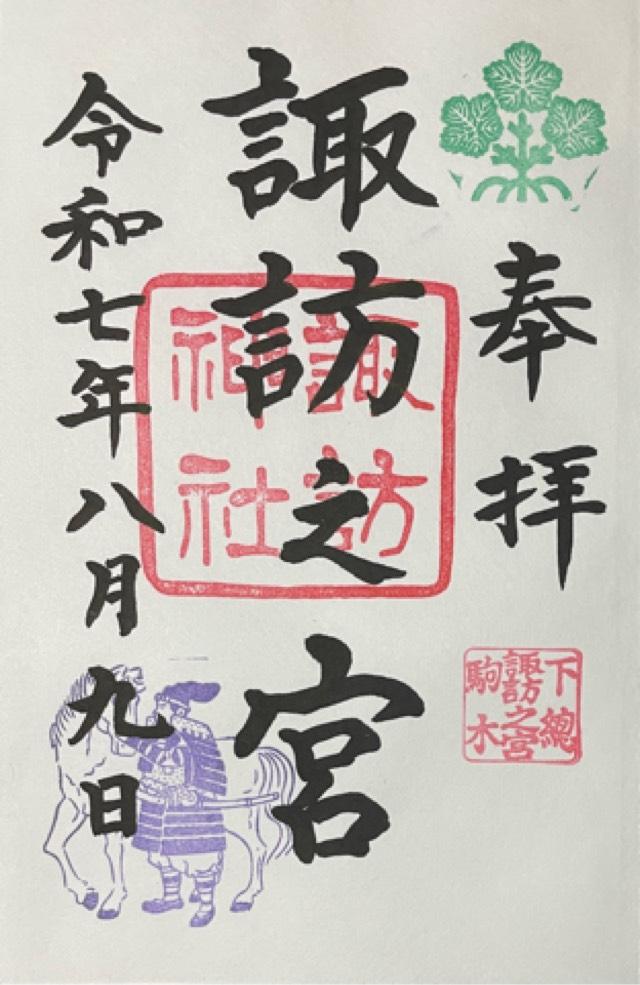 奉拝
下總
諏訪之宮
駒木
諏訪之宮
諏訪
神社
令和七年八月九日